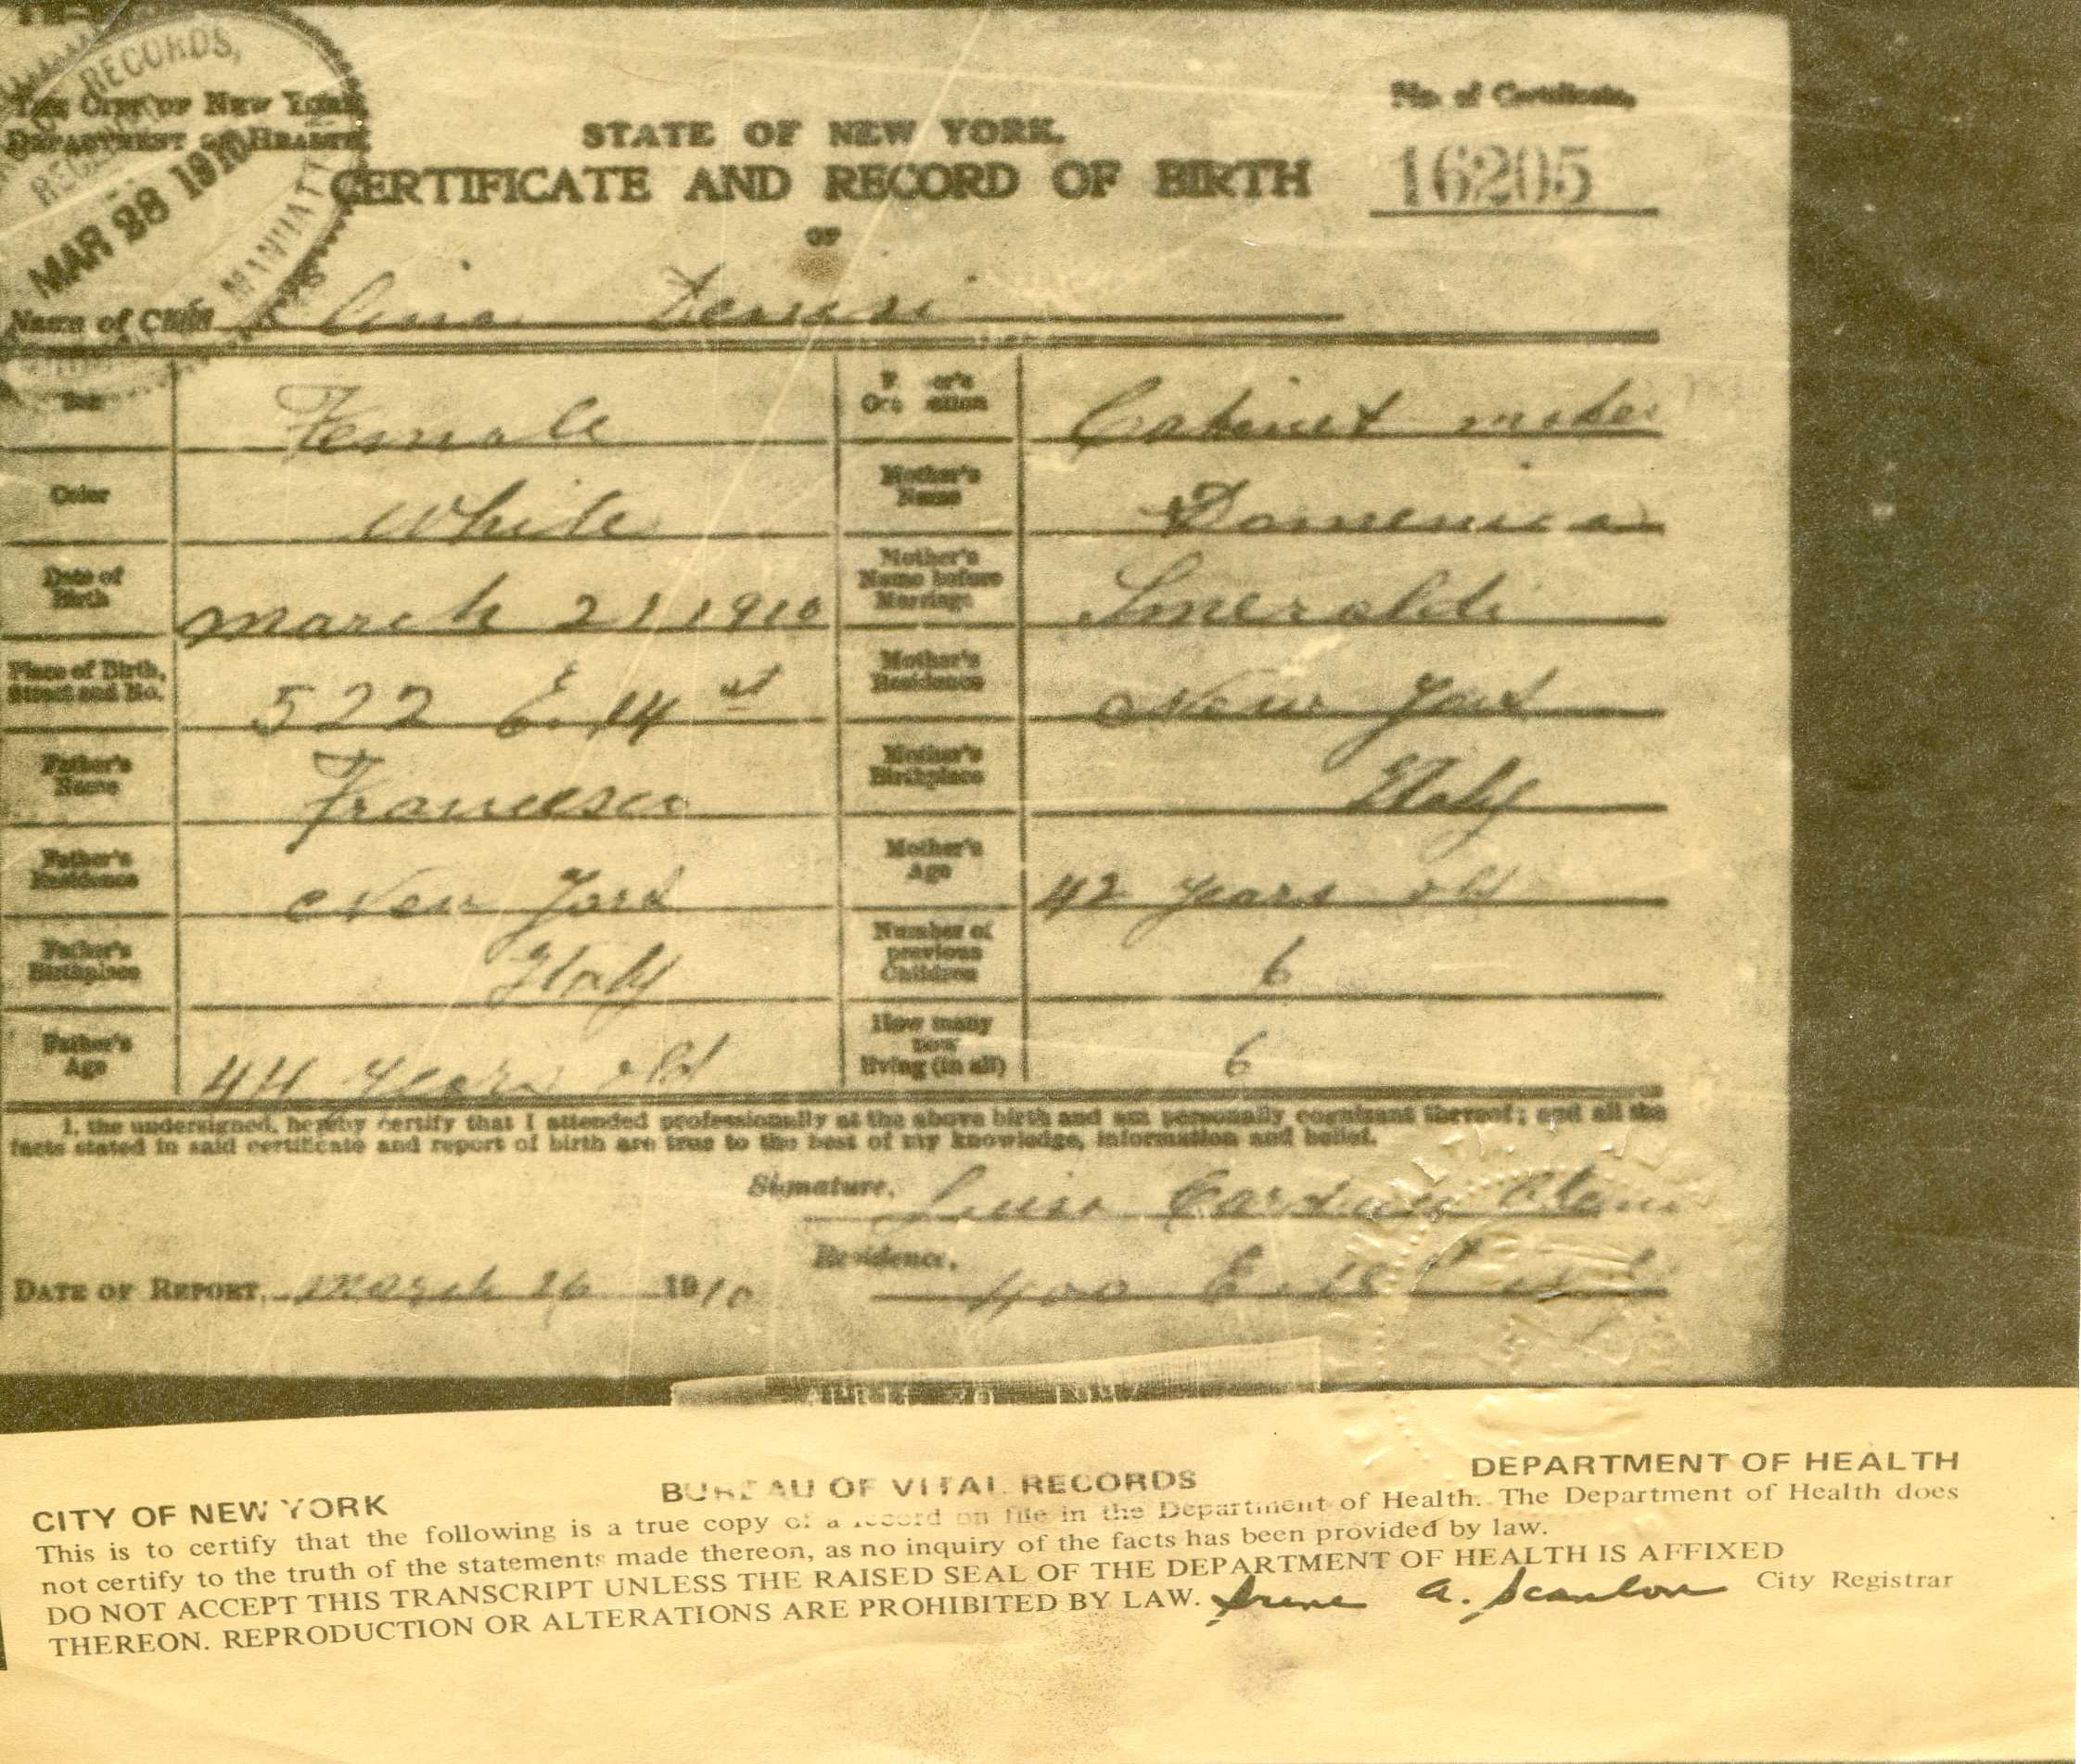 RECORDS,
THE CITY OF NEW YORK
DEPARTMENT OF HEALTH
MAR 28 1910
MANHATT
No. of Certificate,
16205
STATE OF NEW YORK.
CERTIFICATE AND RECORD OF BIRTH
OF
Name of Child
Sex Female
Father's Occupation Cabinet maker
Color White
Mother's Name Domenica
Date of Birth March 21 1910
Mother's Name before Marriage Smeraldi
Place of Birth, Street and No. 522 E. 14 st
Mother's Residence New York
Father's Name Francesco
Mother's Birthplace Italy
Father's Residence New York
Mother's Age 42 years old
Father's Birthplace Italy
Number of previous Children 6
Father's Age 44 years old
How many now living (in all) 6
I, the undersigned, hereby certify that I attended professionally at the above birth and am personally cognizant thereof; and all the
facts stated in said certificate and report of birth are true to the best of my knowledge, information and belief.
Signature,
Residence, 400 E.
DATE OF REPORT, March 26 1910
CITY OF NEW YORK BUREAU OF VITAL RECORDS DEPARTMENT OF HEALTH
This is to certify that the following is a true copy of a record on file in the Department of Health. The Department of Health does
not certify to the truth of the statements made thereon, as no inquiry of the facts has been provided by law.
DO NOT ACCEPT THIS TRANSCRIPT UNLESS THE RAISED SEAL OF THE DEPARTMENT OF HEALTH IS AFFIXED
THEREON. REPRODUCTION OR ALTERATIONS ARE PROHIBITED BY LAW. Irene A. Scanlon City Registrar